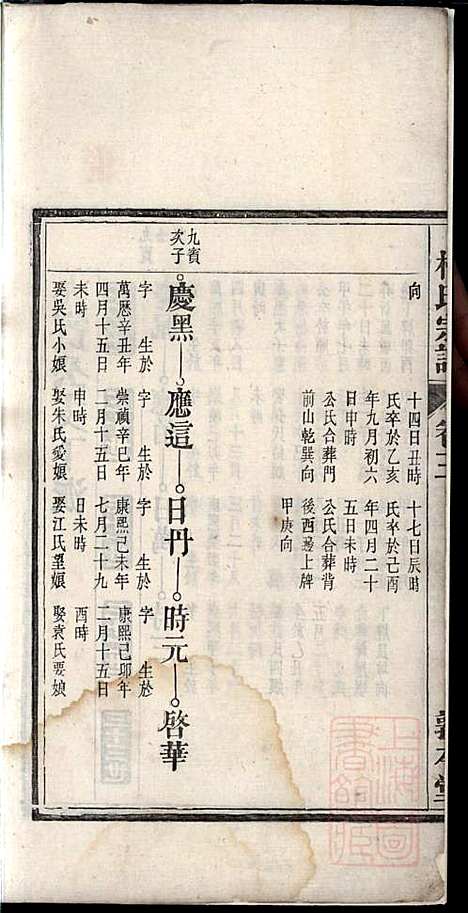 氏宗譜
卷三
敦本堂
向
十四日丑時
氏卒於乙亥
年九月初六
日申時
公氏合葬門
前山乾巽向
十七日辰時
氏卒於己酉
年四月二十
五日未時
公氏合葬背
後酉邊上牌
甲庚向
九賓
次子
慶黑
應這
日丹
時元
啓華
字 生於
萬厯辛丑年
四月十五日
未時
娶吳氏小娘
字 生於
崇禎辛巳年
二月十五日
申時
娶朱氏愛娘
字 生於
康熙己未年
七月二十九
日未時
娶江氏望娘
字 生於
康熙己卯年
二月十五日
酉時
娶袁氏要娘
上海圖
書館藏